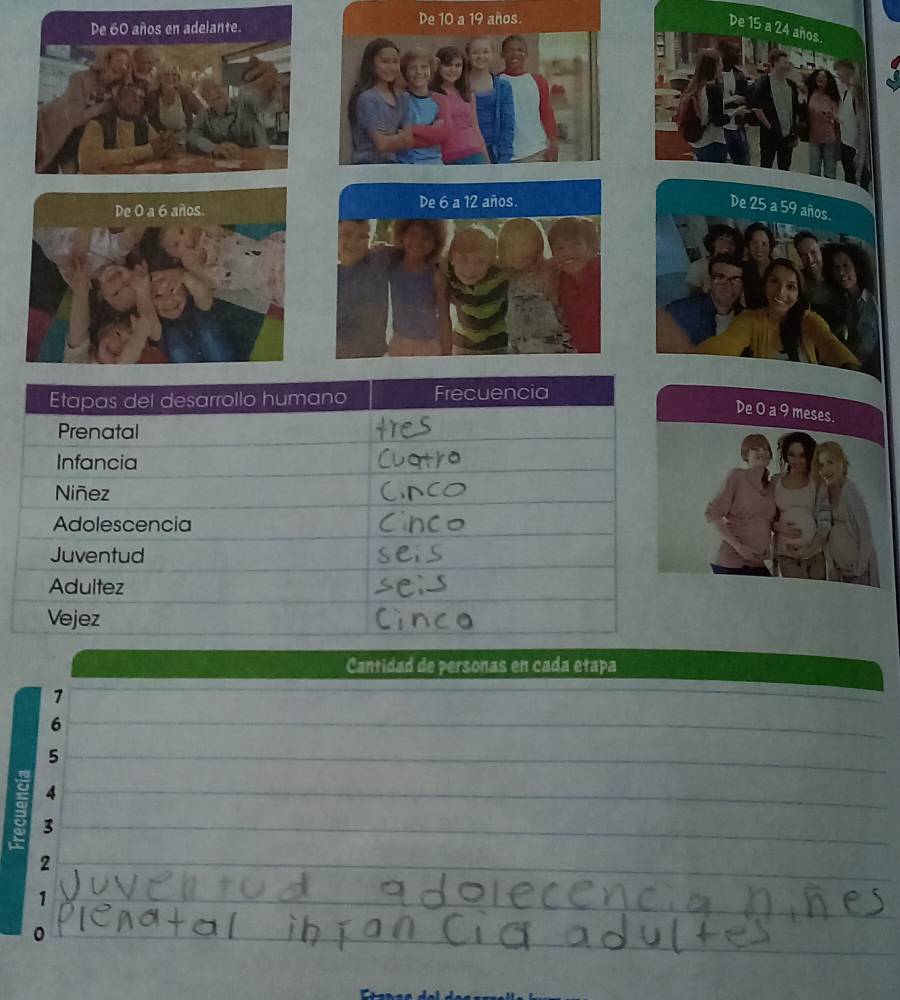 De 60 años en adelante.
De 10 a 19 años.
De 15 a 24 años.
De 0 a 6 años.
De 6 a 12 años.
De 25 a 59 años.
De 0 a 9 meses.
Etapas del desarrollo humano Frecuencia
Prenatal tres
Infancia Cuatro
Niñez Cinco
Adolescencia Cinco
Juventud seis
Adultez seis
Vejez Cinco
Cantidad de personas en cada etapa
Frecuencia
7
6
5
4
3
2
1 Juventud adolecencia niñes
0 Plenatal infancia adultes